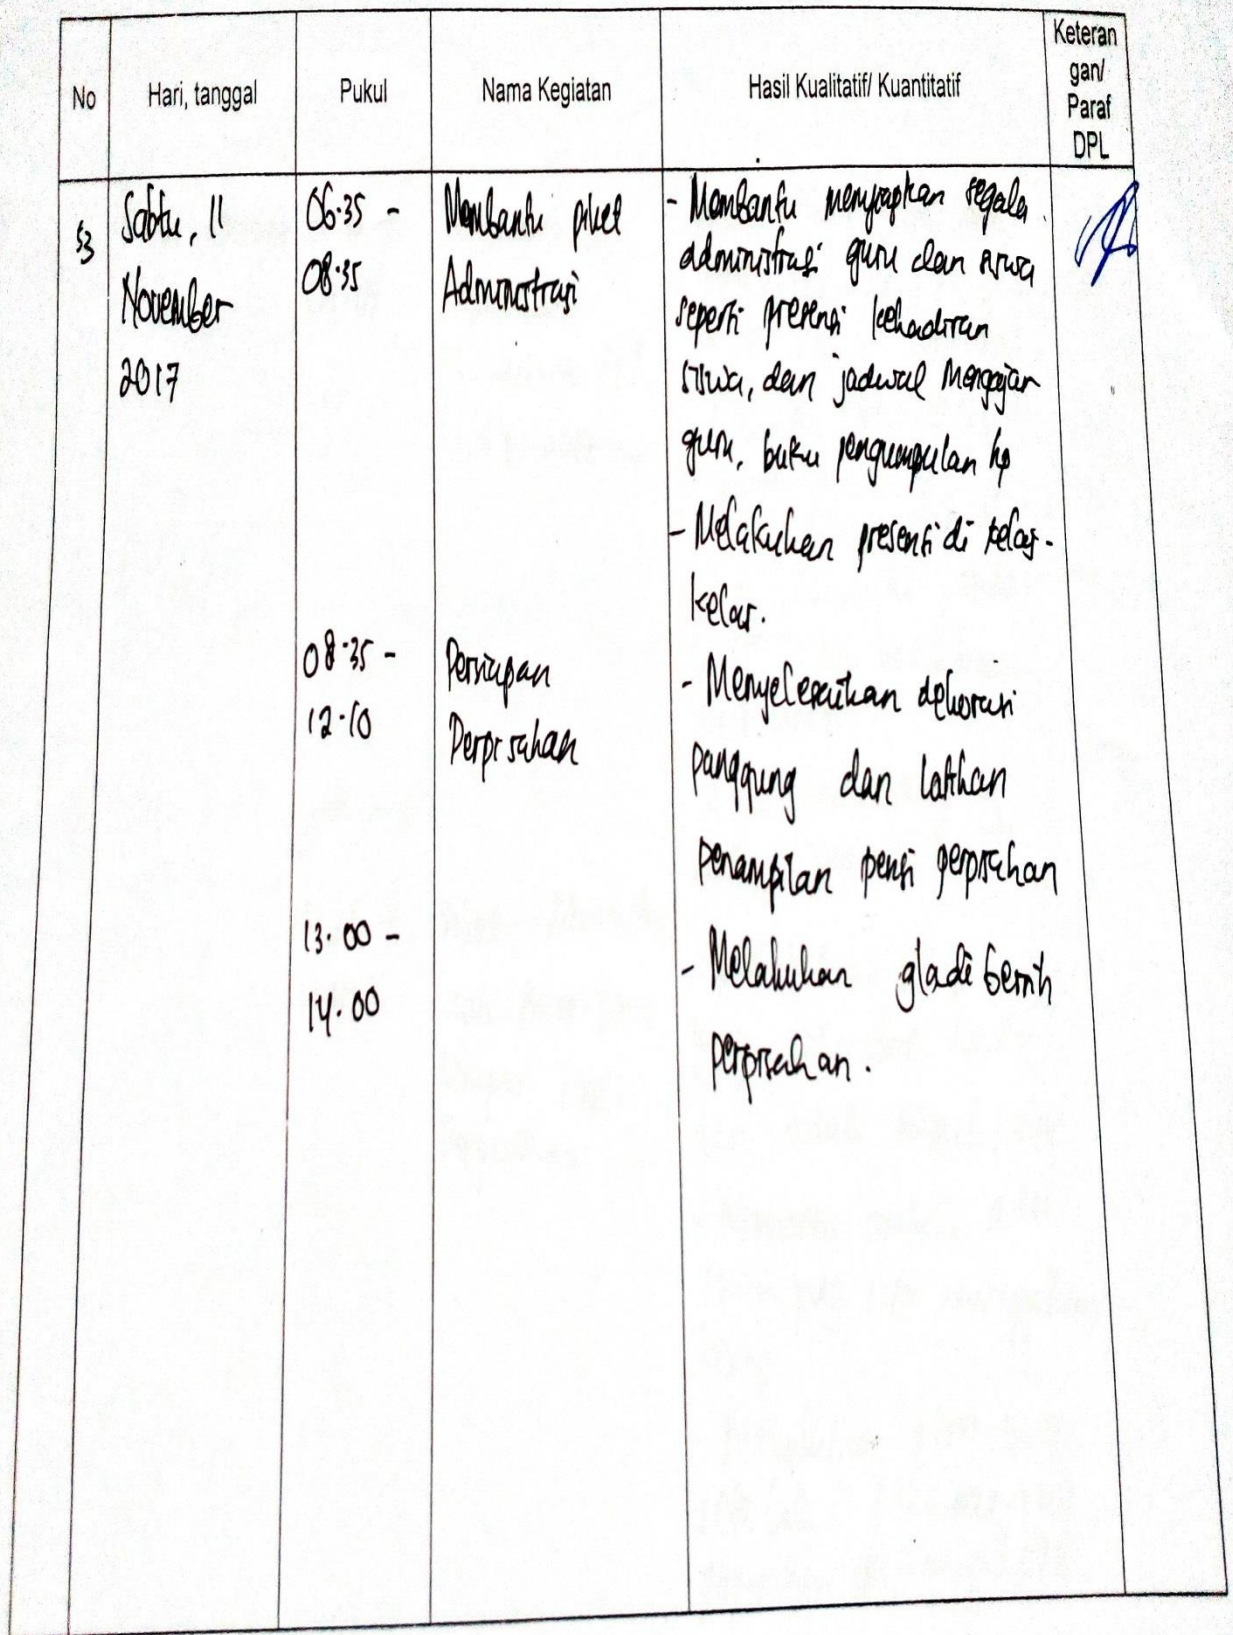 No
Hari, tanggal
Pukul
Nama Kegiatan
Hasil Kualitatif/ Kuantitatif
Keteran
gan/
Paraf
DPL
53
Sabtu, 11
November
2017
06.35 -
08.35
Membantu piket
Administrasi
- Membantu menyiapkan segala
administrasi guru dan siswa
seperti presensi kehadiran
siswa, dan jadwal mengajar
guru, buku pengumpulan hp
- Melakukan presensi di kelas-
kelas.
08.35 -
12.10
Persiapan
Perpisahan
- Menyelesaikan dekorasi
panggung dan latihan
penampilan pensi perpisahan
13.00 -
14.00
- Melakukan gladi bersih
perpisahan.